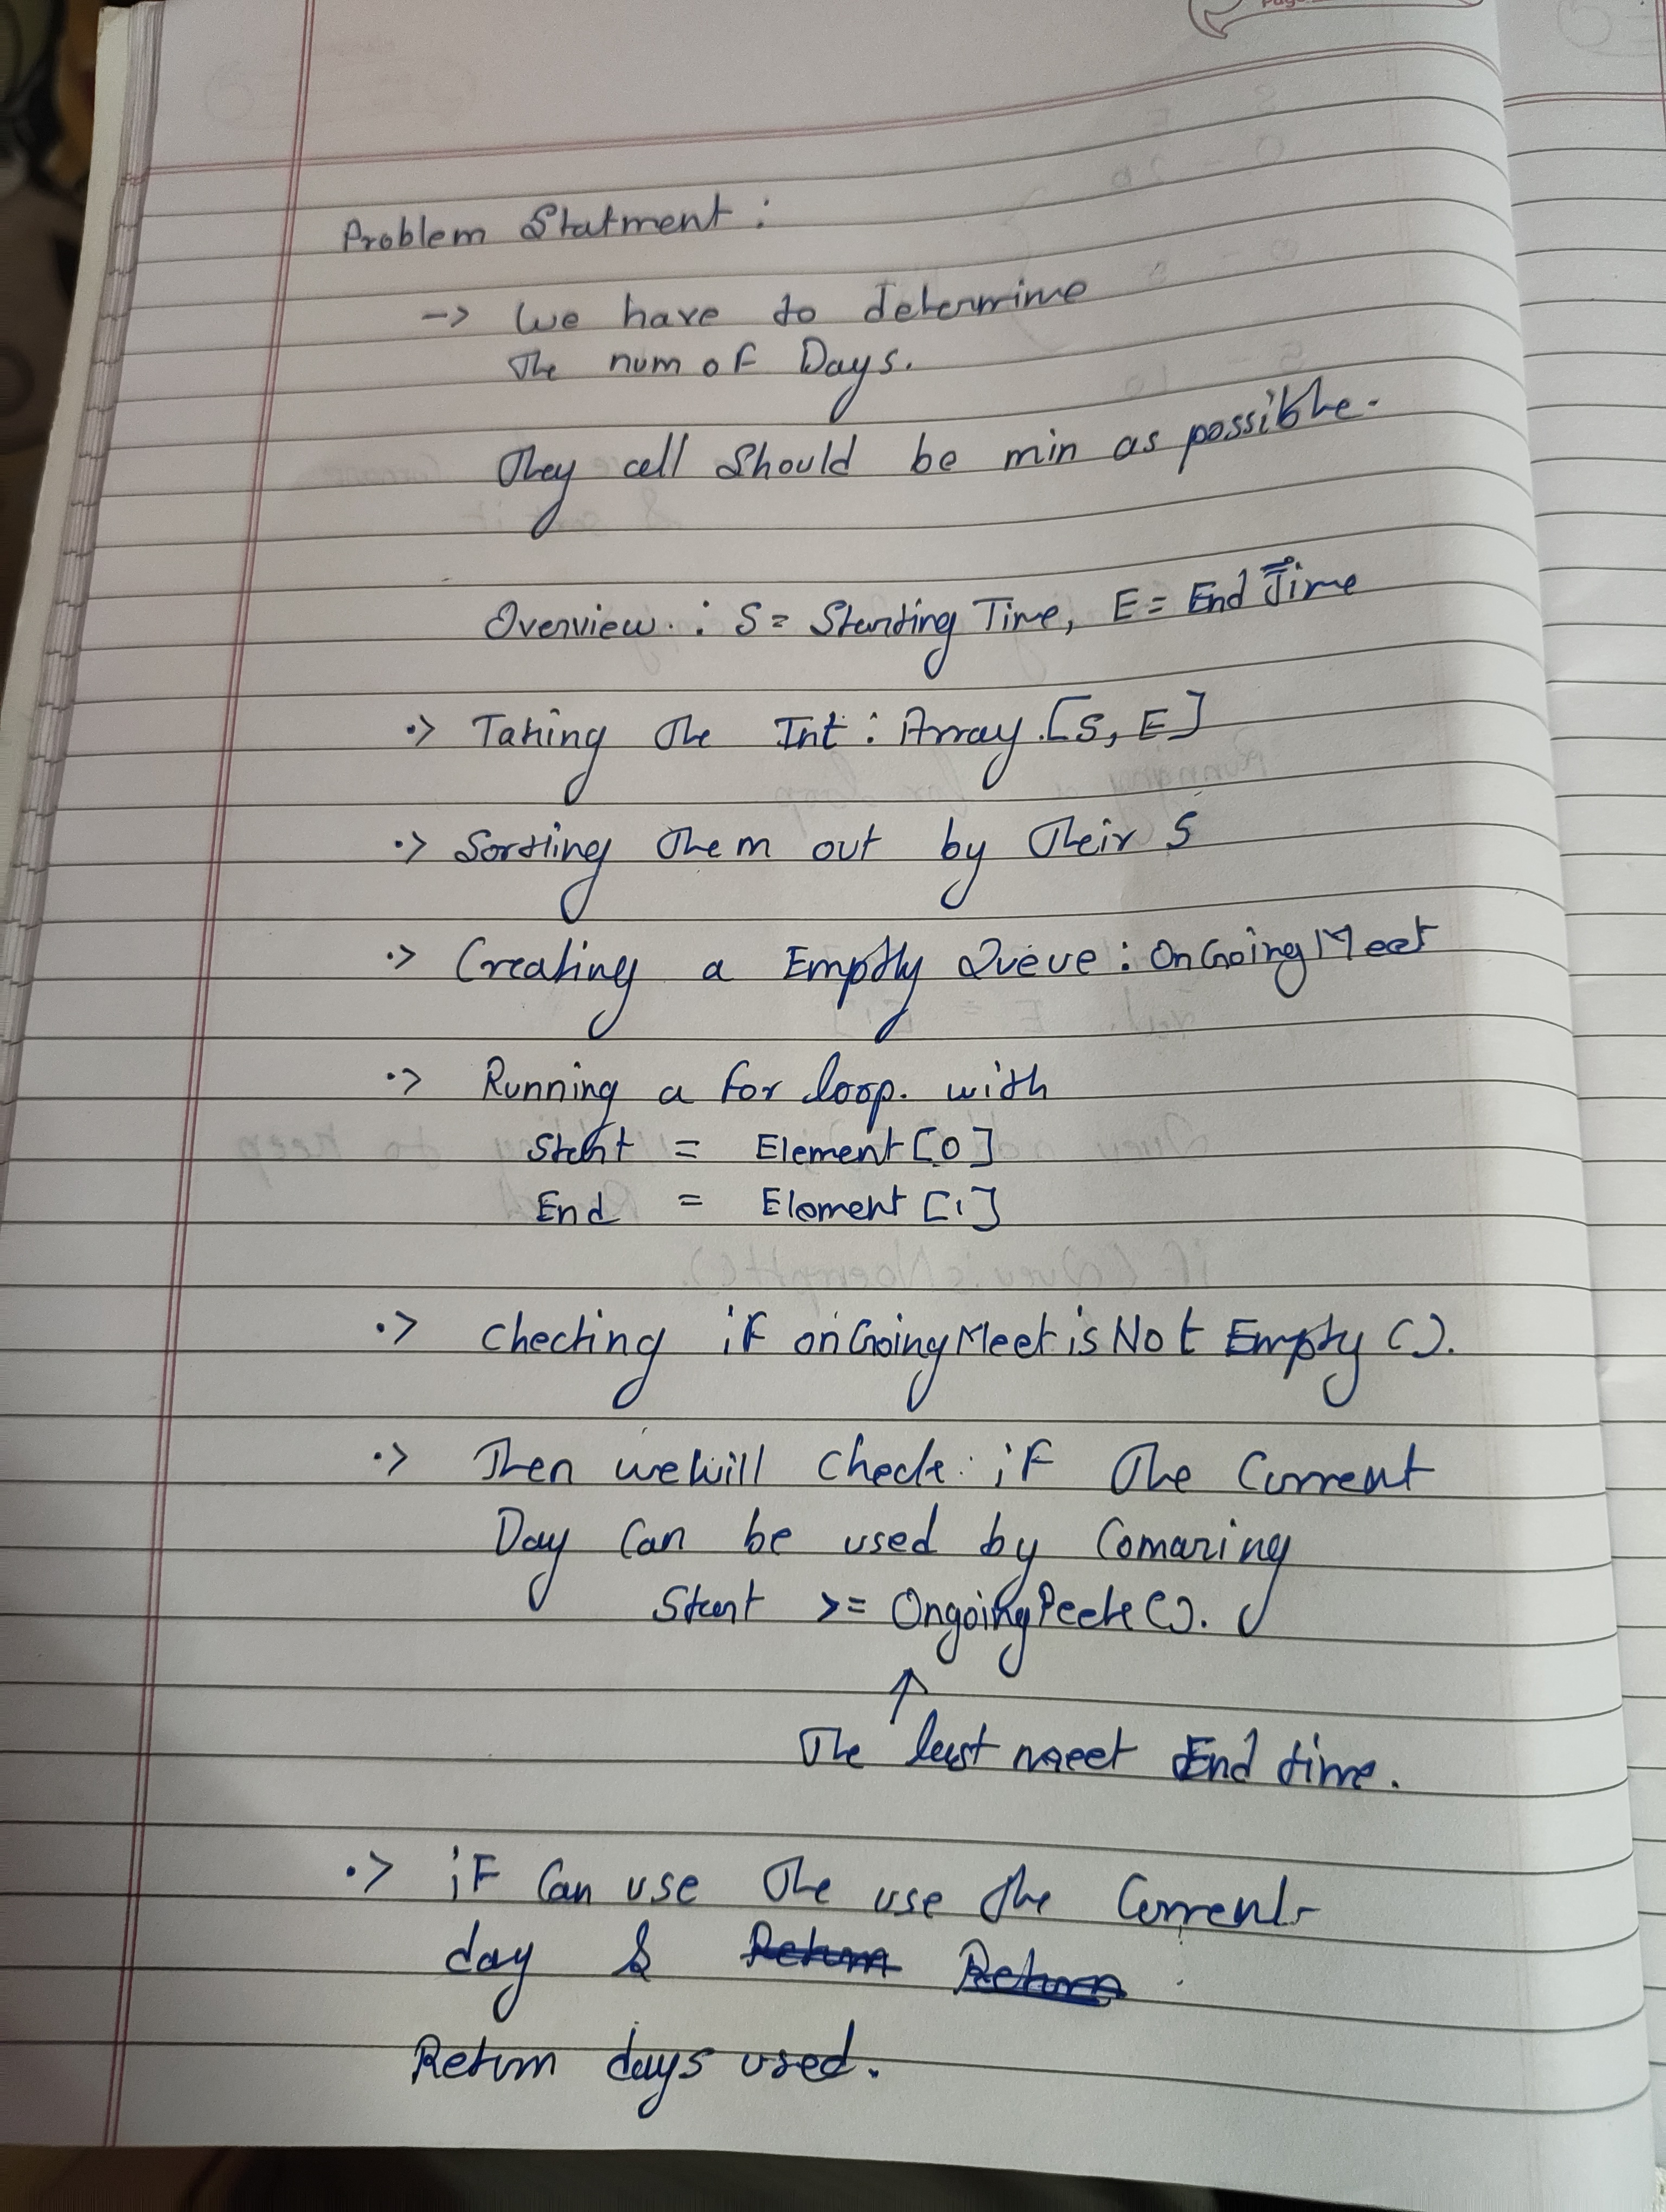 Problem Statment :
-> We have to determine
The num of Days.
They cell Should be min as possible.
Overview. : S = Starting Time, E = End Time
.> Taking The Int : Array.[S, E]
.> Sortting Them out by Their S
.> Creating a Empty Queue : OnGoingMeet
.> Running a for loop. with
Start = Element [0]
End = Element [1]
.> Checking if onGoingMeet is Not Empty ().
.> Then we will check if The Current
Day Can be used by Comaring
Start >= OngoingPeek ().
↑
The last meet End time.
.> if Can use The use the Current
day & Return Return
Return days used.